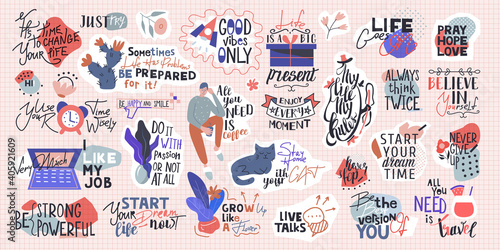 It's
TIME
TO CHANGE
YOUR
LIFE
JUST try
Sometimes
Life Has Problems
BE PREPARED
FOR IT!
GOOD
vibes
ONLY
Life
IS A BIG
present
ENJOY
EVERYDAY
MOMENT
My
life My
Rules
LIFE
Goes
PRAY
HOPE
LOVE
ALWAYS
THINK
TWICE
BELIEVE
Yourself
HI
Use
Your
Time
Wisely
BE HAPPY AND SMILE
All
you
Need
is
coffee
DO IT
WITH
Passion
OR NOT
AT ALL
Very Much
I
LIKE
MY
JOB
Stay
Home
with your
CAT
Never
give up
START
YOUR
dream
TIME
NEVER
GIVE
UP
BE STRONG
POWERFUL
START
Your Dream now
life
GROW UP
Like
a Flower
LIVE
TALKS
Be the
VERSION
OF YOU
ALL
YOU
NEED
is
travel
Adobe Stock | #405921609